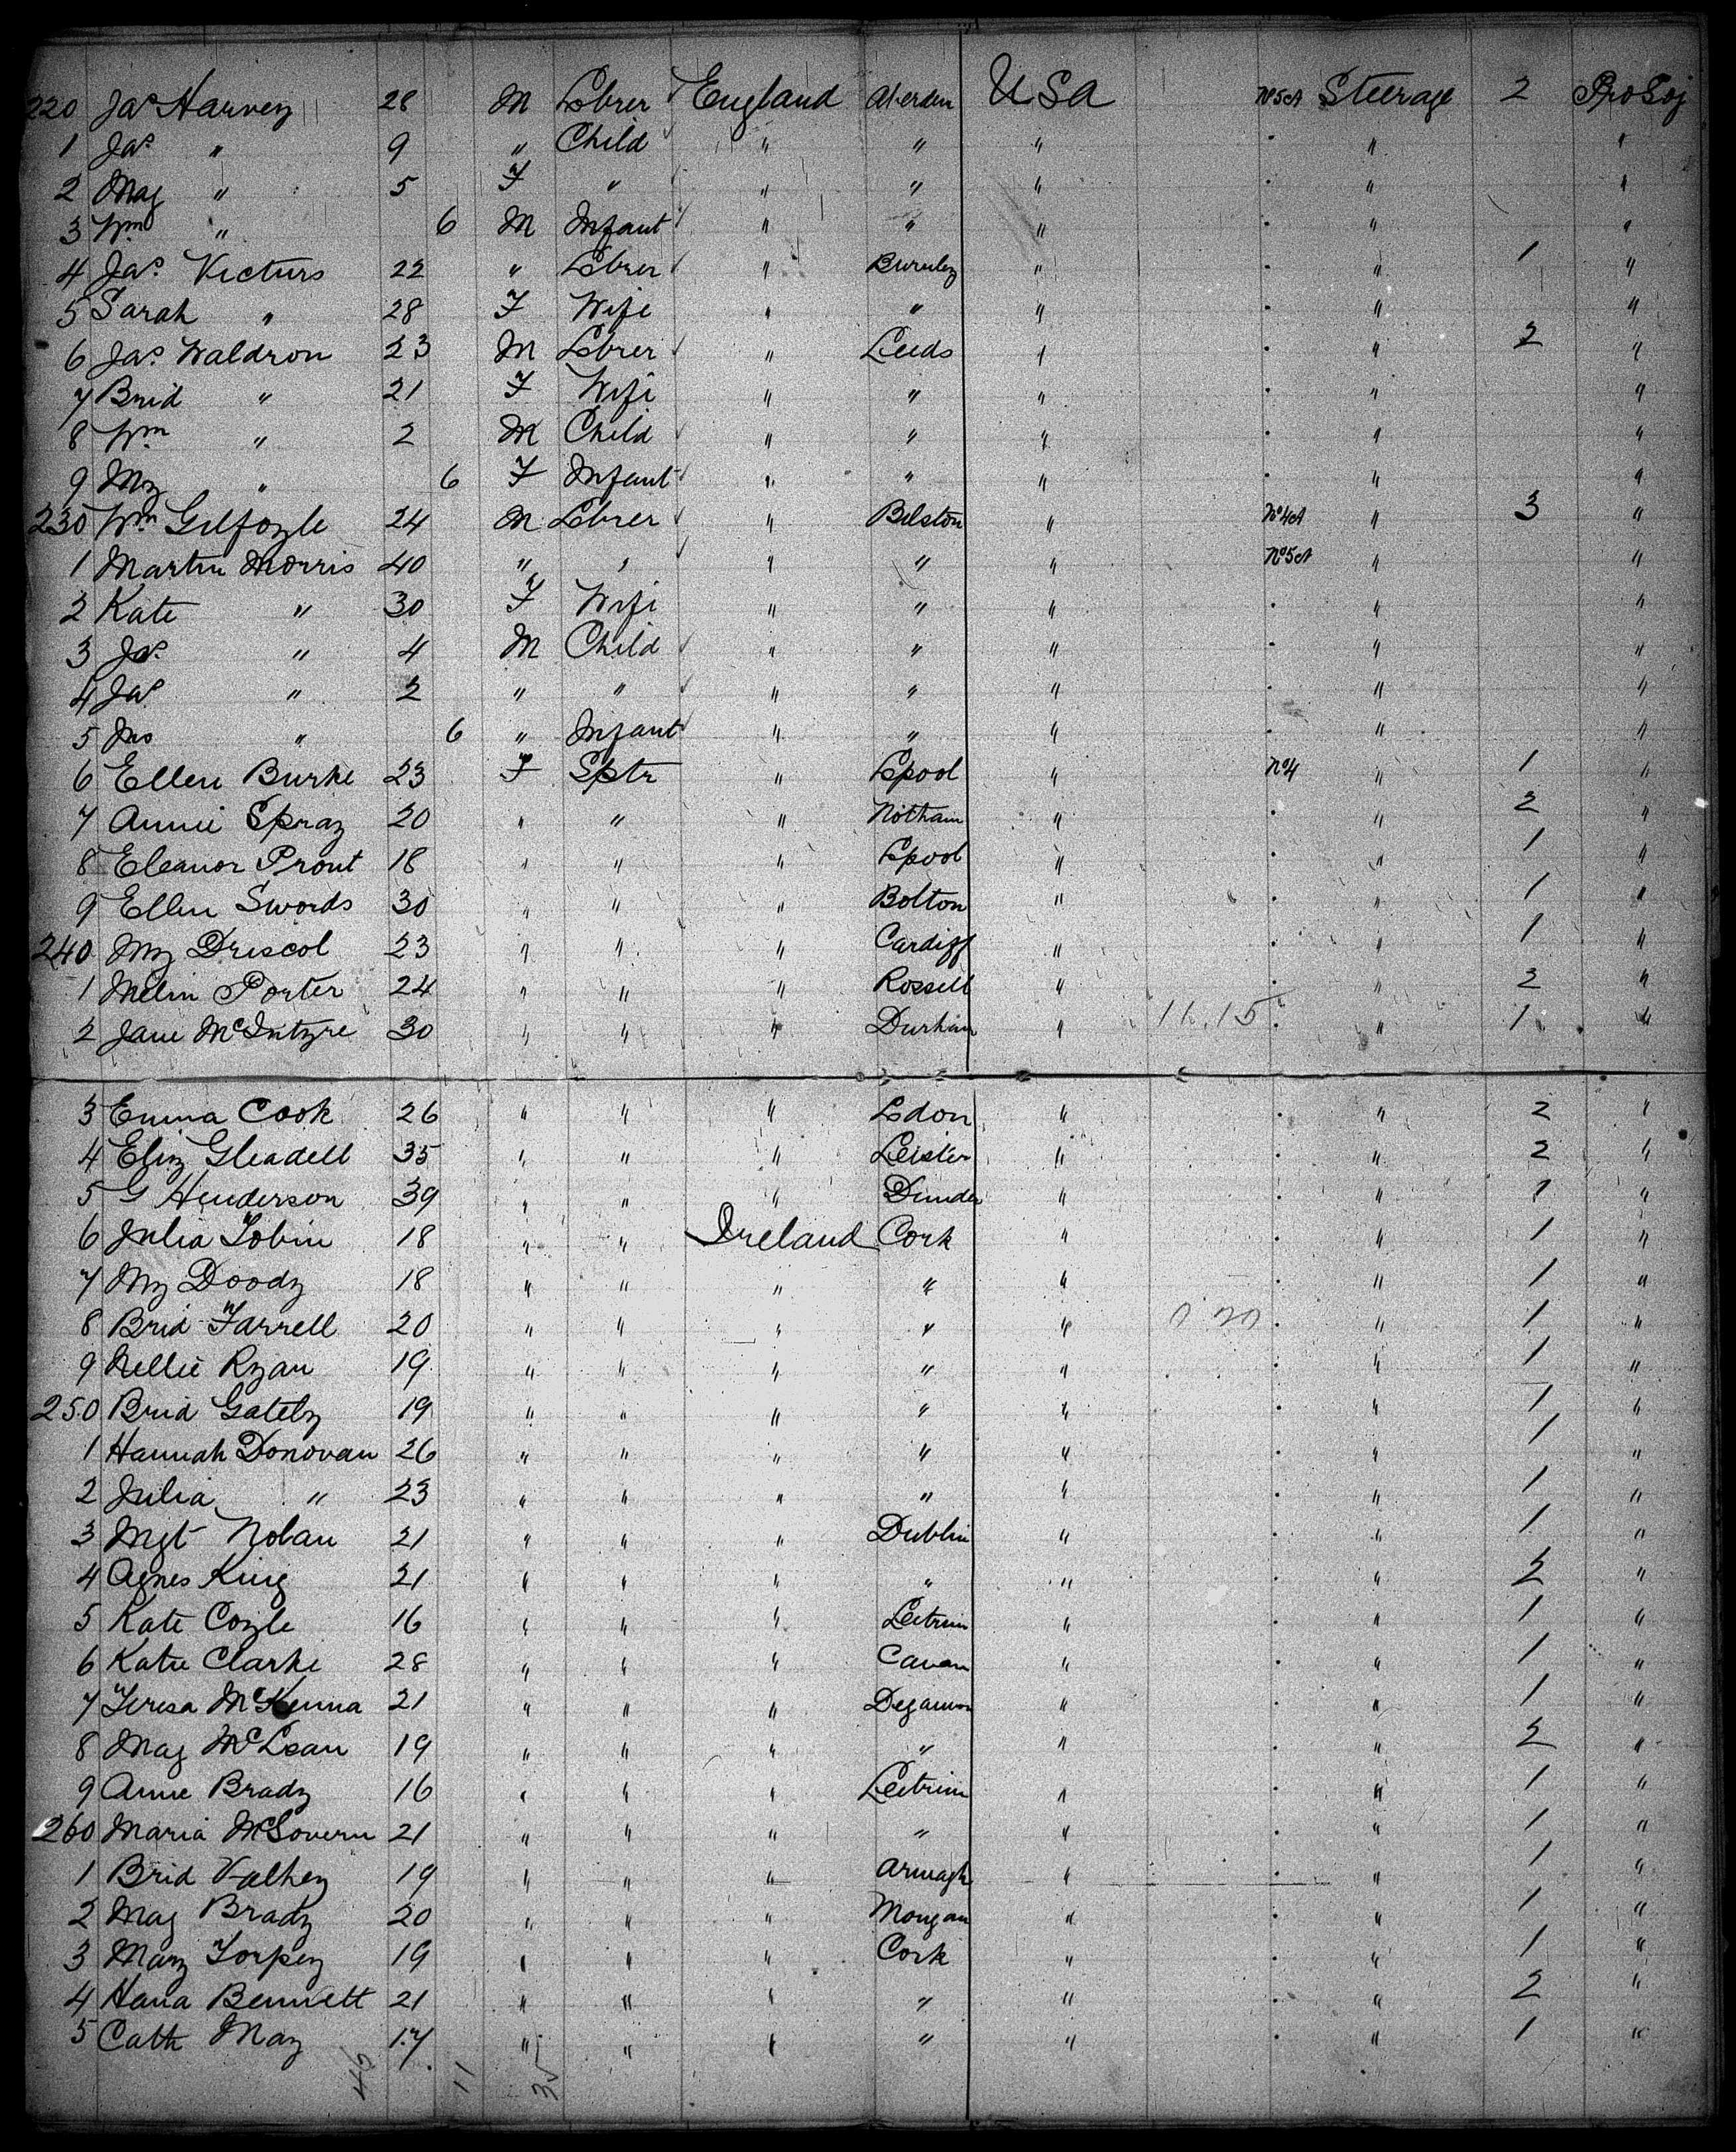 220 Jas Harvey 28 M Lbrer England Aberden USA No5A Steerage 2 Pro Soj
1 Jas " 9 " Child " " " . " "
2 Mag " 5 F " " " " . " "
3 Wm " 6 M Infant " " " . " "
4 Jas. Victurs 22 " Lbrer " Burnley " . " 1 "
5 Sarah " 28 F Wife " " " . " "
6 Jas. Waldron 23 M Lbrer " Leeds " . " 2 "
7 Brid " 21 F Wife " " " . " "
8 Wm " 2 M Child " " " . " "
9 My " 6 F Infant " " " . " "
230 Wm Gilfoyle 24 M Lbrer " Bilston " No4A " 3 "
1 Martin Morris 40 " " " " " No5A " "
2 Kate " 30 F Wife " " " . " "
3 Jas. " 4 M Child " " " . " "
4 Jas " 2 " " " " " . " "
5 Jno " 6 " Infant " " " . " "
6 Ellen Burke 23 F Sptr " Lpool " No4 " 1 "
7 Annie Spray 20 " " " Notham " . " 2 "
8 Eleanor Prout 18 " " " Lpool " . " 1 "
9 Ellen Swords 30 " " " Bolton " . " 1 "
240 My Driscol 23 " " " Cardiff " . " 1 "
1 Porter 24 " " " Rossell " . " 2 "
2 Jane McIntyre 30 " " " Durham " 16.15 . " 1 "
3 Emma Cook 26 " " " Ldon " . " 2 "
4 Eliz Gleadell 35 " " " Leister " . " 2 "
5 G Henderson 39 " " " Dundee " . " 1 "
6 Julia Tobin 18 " " Ireland Cork " . " 1 "
7 My Doody 18 " " " " " . " 1 "
8 Brid Farrell 20 " " " " " . " 1 "
9 Nellie Ryan 19 " " " " " . " 1 "
250 Brid Gately 19 " " " " " . " 1 "
1 Hannah Donovan 26 " " " " " . " 1 "
2 Julia " 23 " " " " " . " 1 "
3 Mgt Nolan 21 " " " Dublin " . " 1 "
4 Agnes King 21 " " " " " . " 2 "
5 Kate Coyle 16 " " " Leitrim " . " 1 "
6 Katie Clarke 28 " " " Cavan " . " 1 "
7 Teresa McKenna 21 " " " " . " 1 "
8 Mag McLean 19 " " " " " . " 2 "
9 Anne Brady 16 " " " Leitrim " . " 1 "
260 Maria McGovern 21 " " " " " . " 1 "
1 Brid 19 " " " Armagh " . " 1 "
2 Mag Brady 20 " " " Mongan " . " 1 "
3 Mary Torpey 19 " " " Cork " . " 1 "
4 Hana Bennett 21 " " " " " . " 2 "
5 Cath May 17 " " " " " . " 1 "
46 11 35